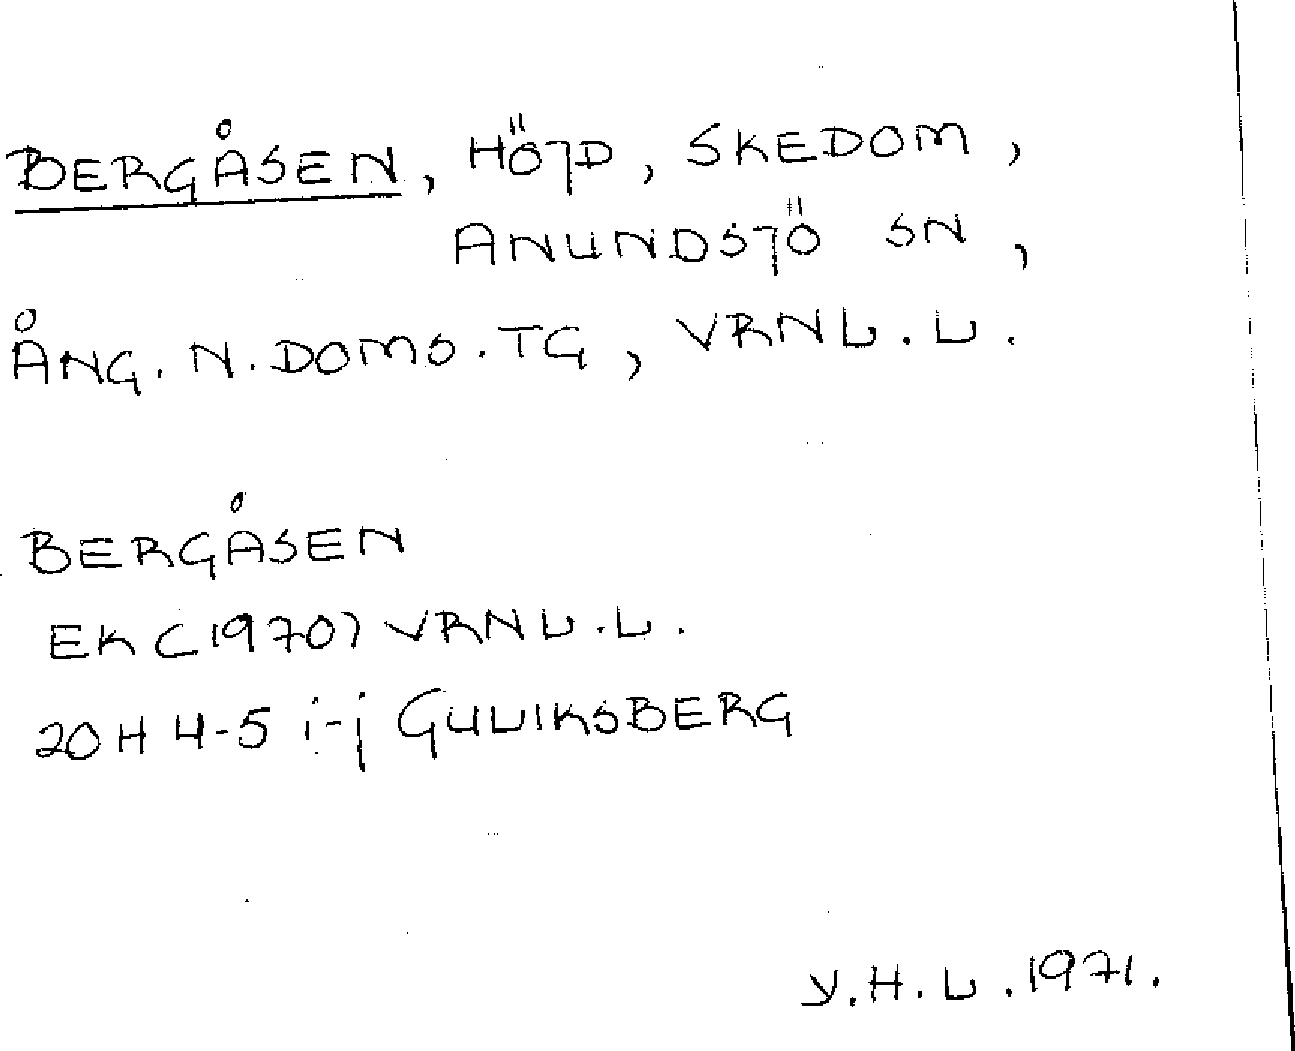 BERGÅSEN, HÖJD, SKEDOM,
ANUNDSJÖ SN,
ÅNG. N. DOMS. TG, VRNL. L.
BERGÅSEN
EK (1970) VRNL. L.
20H 4-5 i-j GULIKSBERG
Y. H. L. 1971.